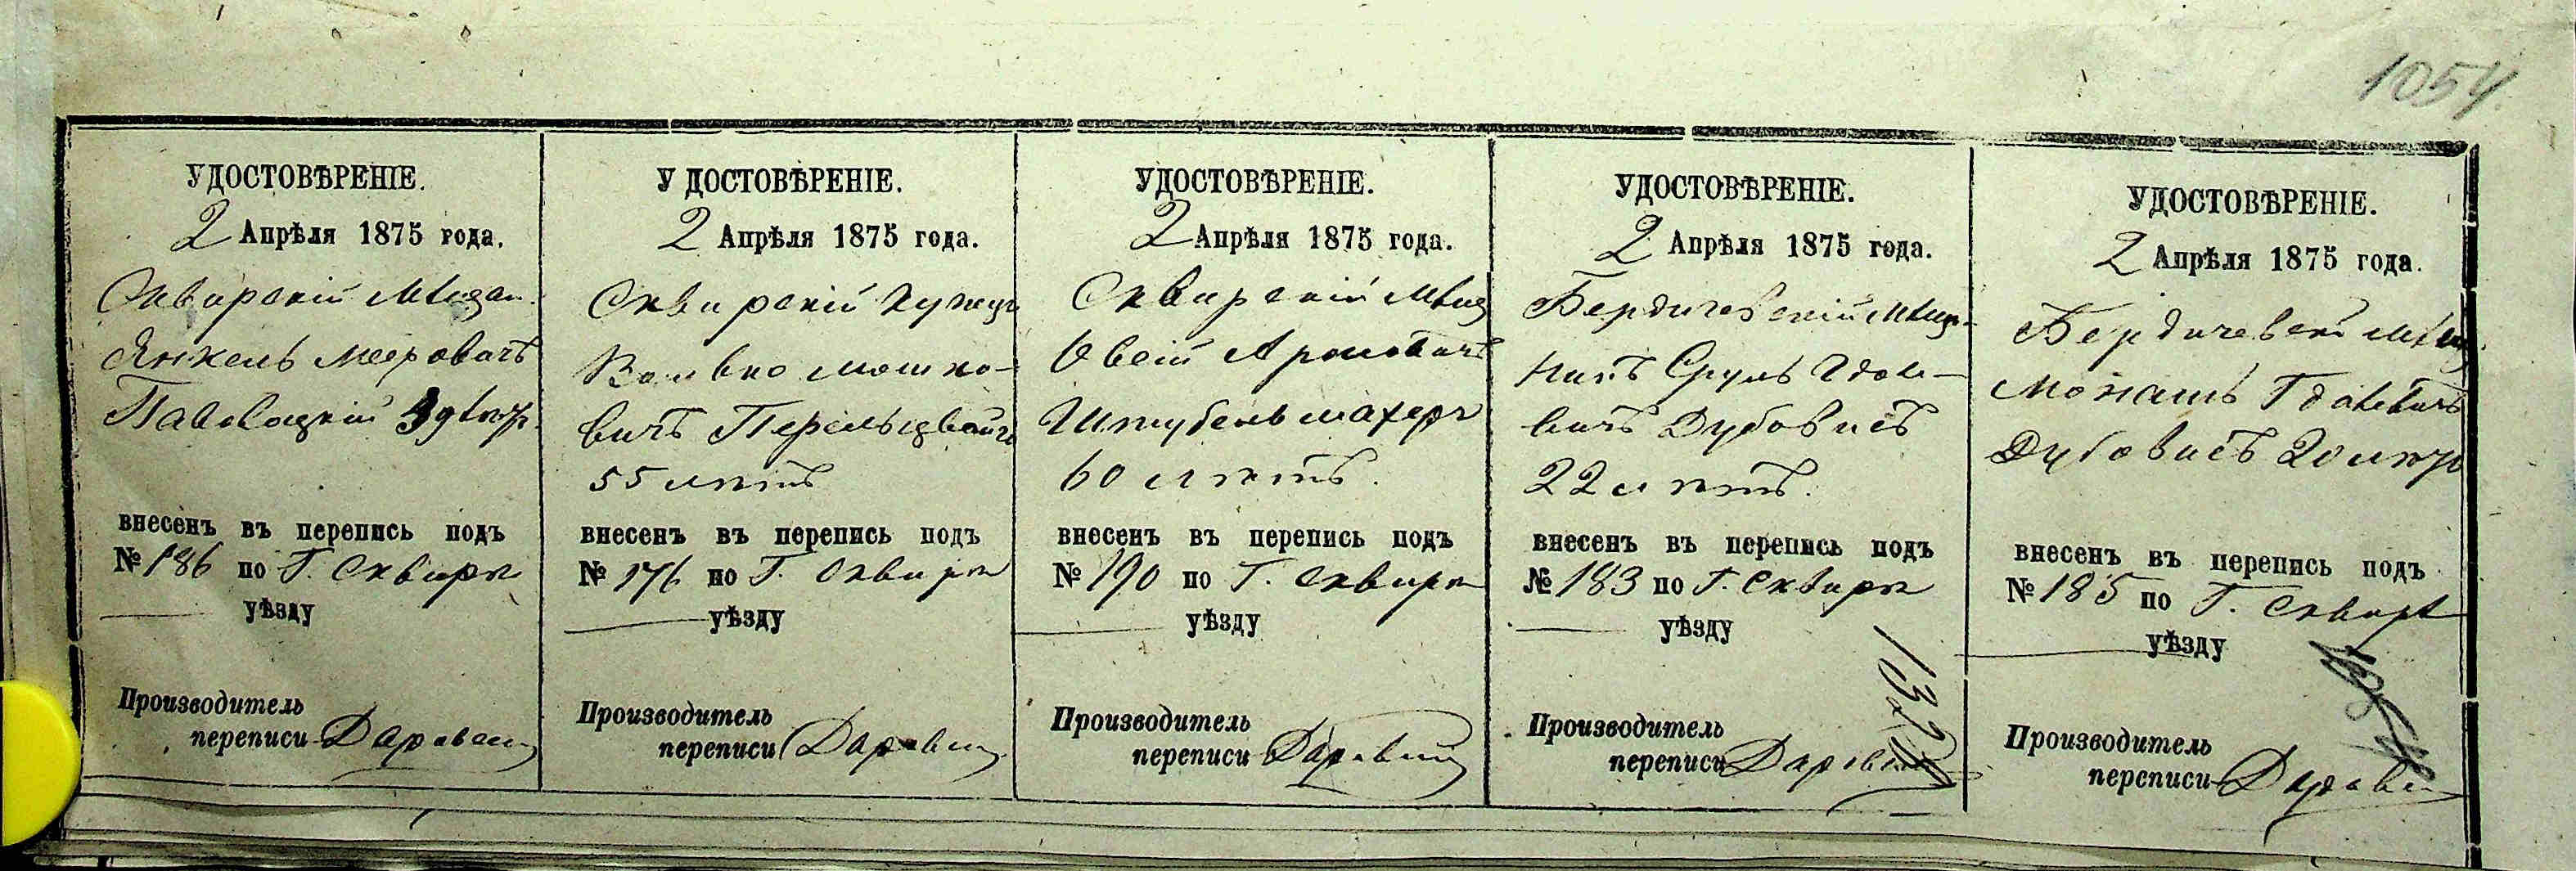 1054.
УДОСТОВѢРЕНІЕ.
2 Апрѣля 1875 года.
Сквирскій мѣщан.
Янкель Мееровичъ
Паволоцкій
внесенъ въ перепись подъ
№ 186 по Г. Сквирѣ
уѣзду
Производитель
переписи
У ДОСТОВѢРЕНІЕ.
2 Апрѣля 1875 года.
Сквирскій купецъ
Волько Мошко-
вичъ Перельцвейгъ
55 лѣтъ
внесенъ въ перепись подъ
№ 176 по Г. Сквирѣ
уѣзду
Производитель
переписи
УДОСТОВѢРЕНІЕ.
2 Апрѣля 1875 года.
Сквирскій мѣщ
Овсій Ароновичъ
Штубельмахеръ
60 лѣтъ.
внесенъ въ перепись подъ
№ 190 по Г. Сквирѣ
уѣзду
Производитель
переписи
УДОСТОВѢРЕНІЕ.
2 Апрѣля 1875 года.
Бердичевскій мѣща-
нинъ Сруль Гдале-
вичъ Дубовисъ
22 лѣтъ.
внесенъ въ перепись подъ
№ 183 по Г. Сквирѣ
уѣзду
Производитель
переписи
УДОСТОВѢРЕНІЕ.
2 Апрѣля 1875 года.
Бердичевскі мѣщ.
Монашъ Гдалевичъ
Дубовисъ 20 лѣтъ
внесенъ въ перепись подъ
№ 185 по Г. Сквирѣ
уѣзду
Производитель
переписи